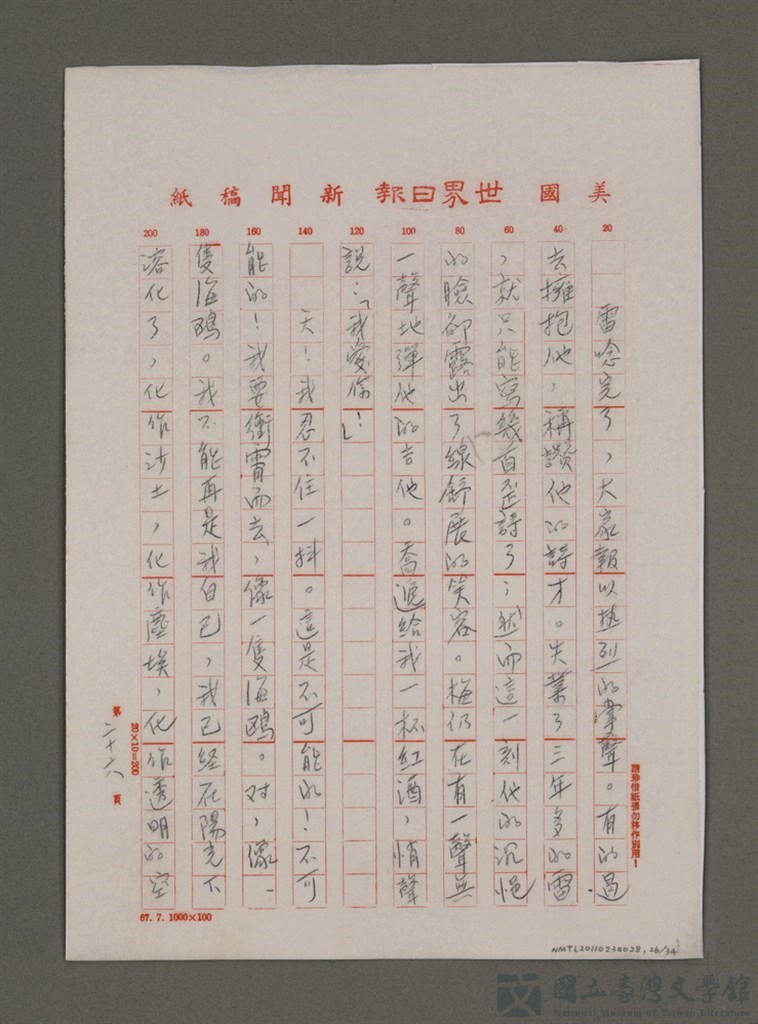 美國世界日報新聞稿紙
20 40 60 80 100 120 140 160 180 200
雷唸完了，大家報以热烈的掌聲。有的過
去擁抱他，稱讚他的詩才。失業了三年多的雷
，就只能寫幾首歪詩了；然而這一刻他的沉悒
的臉卻露出了線舒展的笑容。梅仍在有一聲無
一聲地彈他的吉他。喬遞給我一杯紅酒，悄聲
說：「我愛你！」
天！我忍不住一抖。這是不可能的！不可
能的！我要衝霄而去，像一隻海鷗。对，像一
隻海鷗。我不能再是我自己，我已経在陽光下
溶化了，化作沙土，化作塵埃，化作透明的空
請珍惜紙張勿移作別用！
20×10=200
第二十六頁
67.7.1000×100
NMTL20110230028, 26/34
國立臺灣文學館
National Museum of Taiwan Literature